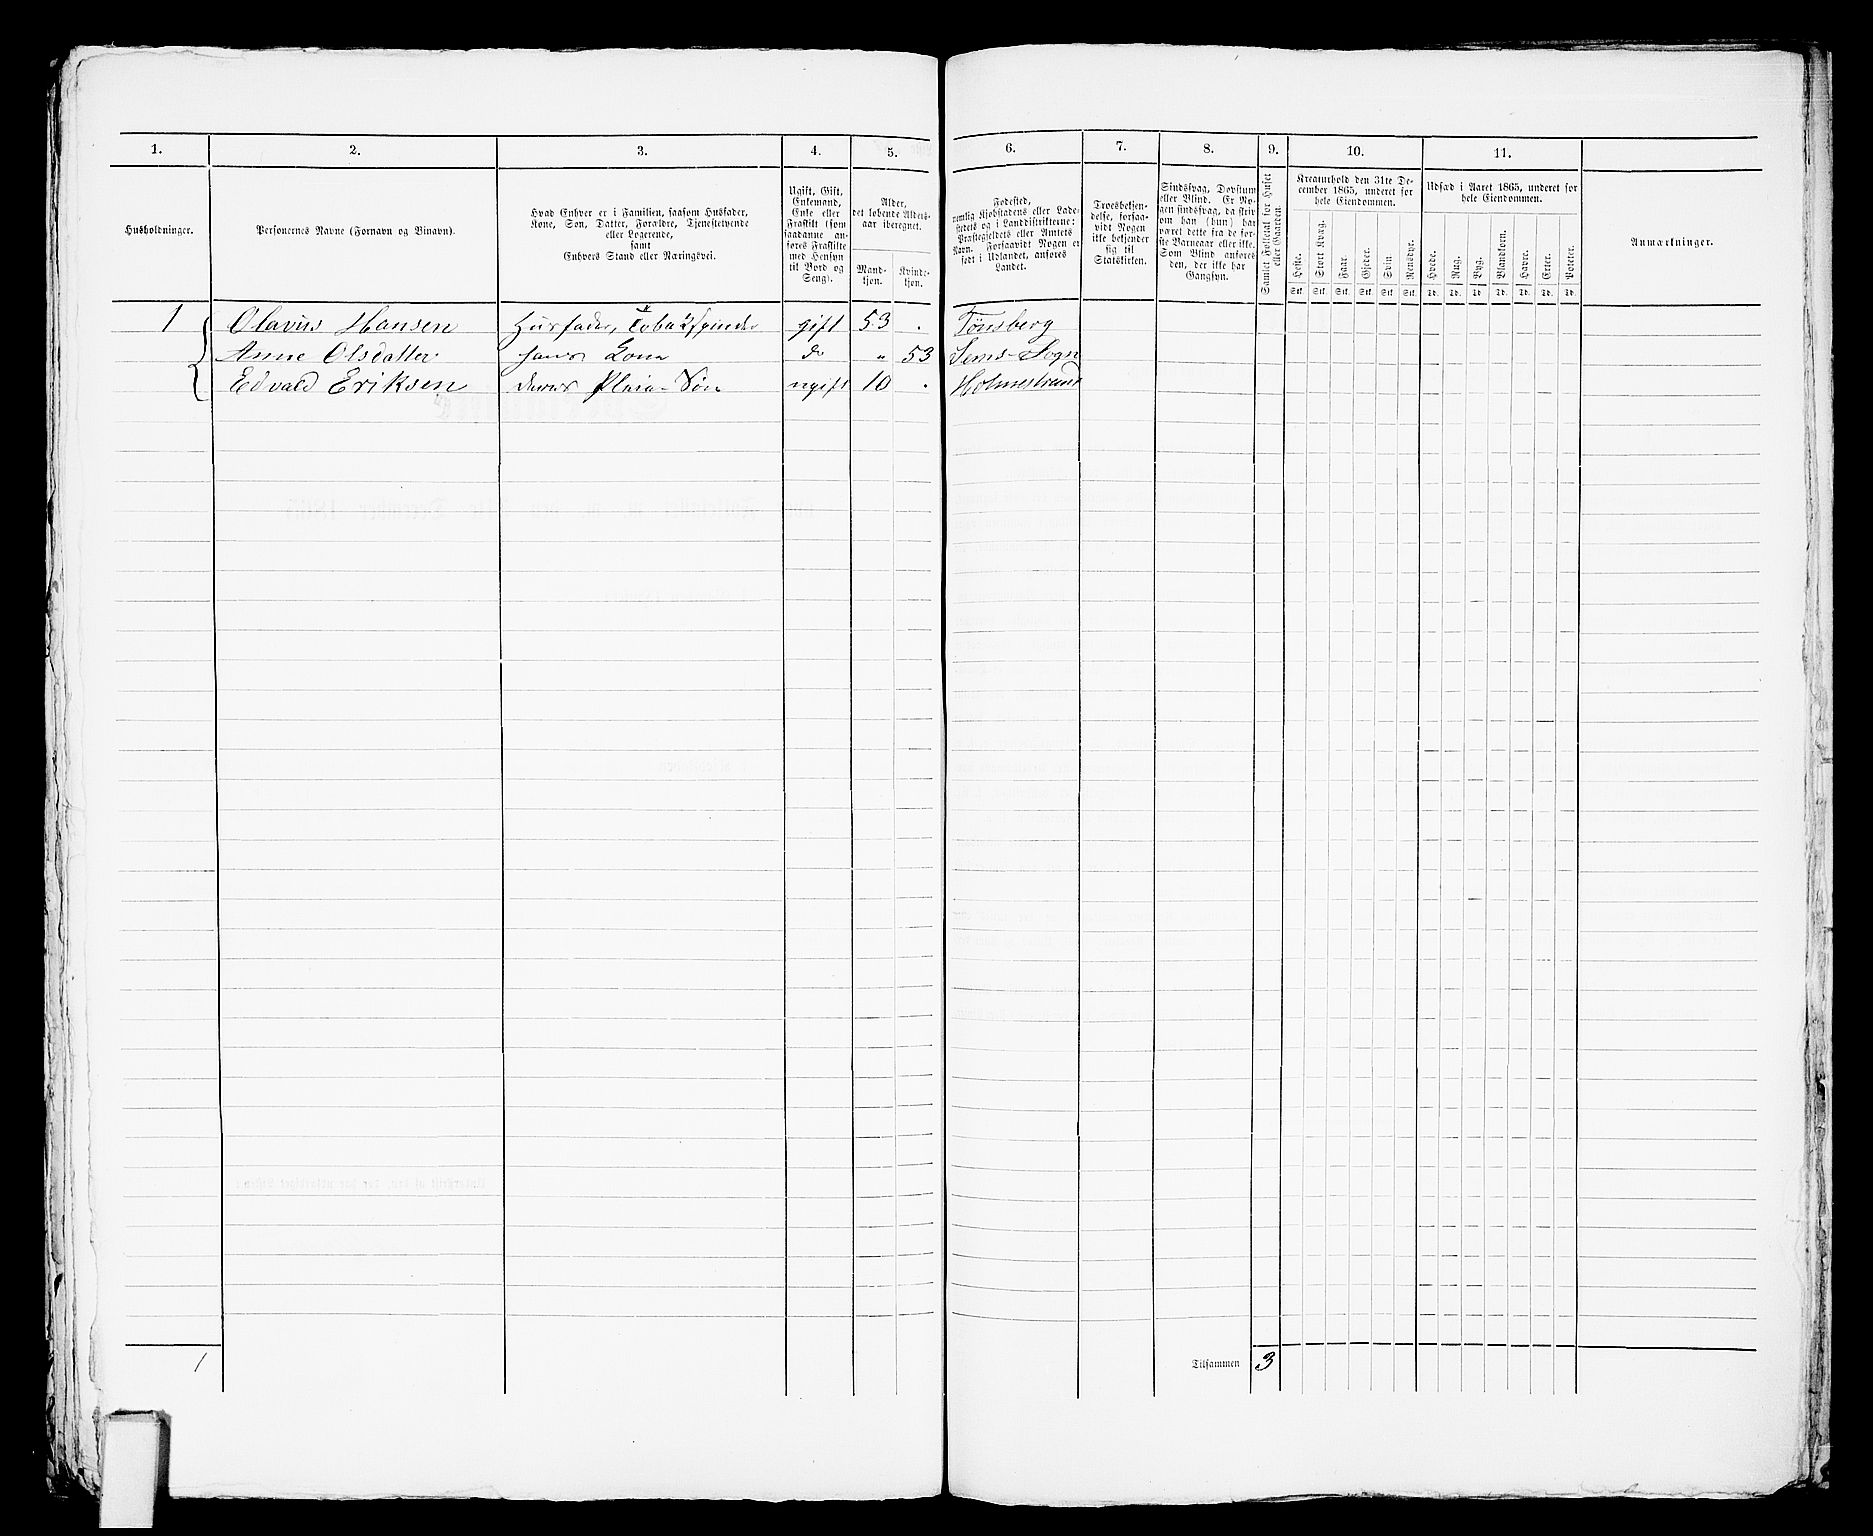 1. 2. 3. 4. 5. 6. 7. 8. 9. 10. 11.
Husholdninger.
Personernes Navne (Fornavn og Binavn).
Hvad Enhver er i Familien, saasom Husfader,
Kone, Søn, Datter, Forældre, Tjenestetyende
eller Logerende,
samt
Enhvers Stand eller Næringsvei.
Ugift, Gift,
Enkemand,
Enke eller
Fraskilt (som
saadanne an-
føres Fraskilte
med Hensyn
til Bord og
Seng).
Alder,
det løbende Alders-
aar iberegnet.
Mand-
kjøn.
Kvinde-
kjøn.
Fødested,
nemlig Kjøbstadens eller Lade-
stedets og i Landdistrikterne:
Præstegjeldets eller Amtets
Navn. Forsaavidt Nogen er
født i Udlandet, anføres
Landet.
Troesbekjen-
delse, forsaa-
vidt Nogen
ikke bekjender
sig til
Statskirken.
Sindssvag, Døvstum
eller Blind. Er No-
gen sindssvag, da skriv
om han (hun) har
været dette fra de før-
ste Barneaar eller ikke.
Som Blind anføres
den, der ikke har
Gangsyn.
Samlet Folketal for Huset
eller Gaarden.
Kreaturhold den 31te De-
cember 1865, underet for
hele Eiendommen.
Heste.
Stort Kvæg.
Faar.
Gjeder.
Svin.
Rensdyr.
Stk. Stk. Stk. Stk. Stk. Stk.
Udsæd i Aaret 1865, underet for
hele Eiendommen.
Hvede.
Rug.
Byg.
Blandkorn.
Havre.
Erter.
Poteter.
Td. Td. Td. Td. Td. Td. Td.
Anmærkninger.
1 Olavus Hansen Husfader, Tobaksspinder gift 53 . Tønsberg
Anne Olsdatter hans Kone do " 53 Sems-Sogn
Edvald Eriksen deres Pleie-Søn ugift 10 . Holmestrand
1
Tilsammen 3